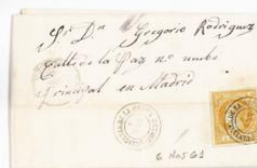 Sr Dn Gregorio Rodriguez
Calle de la Paz nº nuebe
Principal en Madrid
6 Nov 61